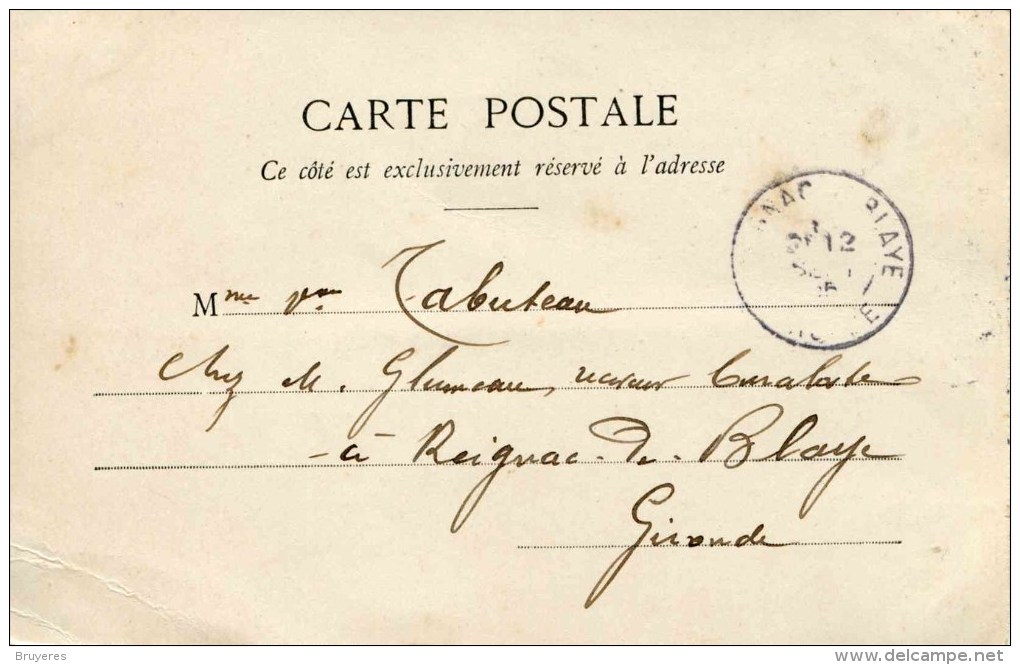 CARTE POSTALE
Ce côté est exclusivement réservé à l'adresse
GNAC BLAYE
12
Mme Tabuteau
Chez M. Glumeau, receveur buraliste
à Reignac-de-Blaye
Gironde
Bruyeres
delcampe.net